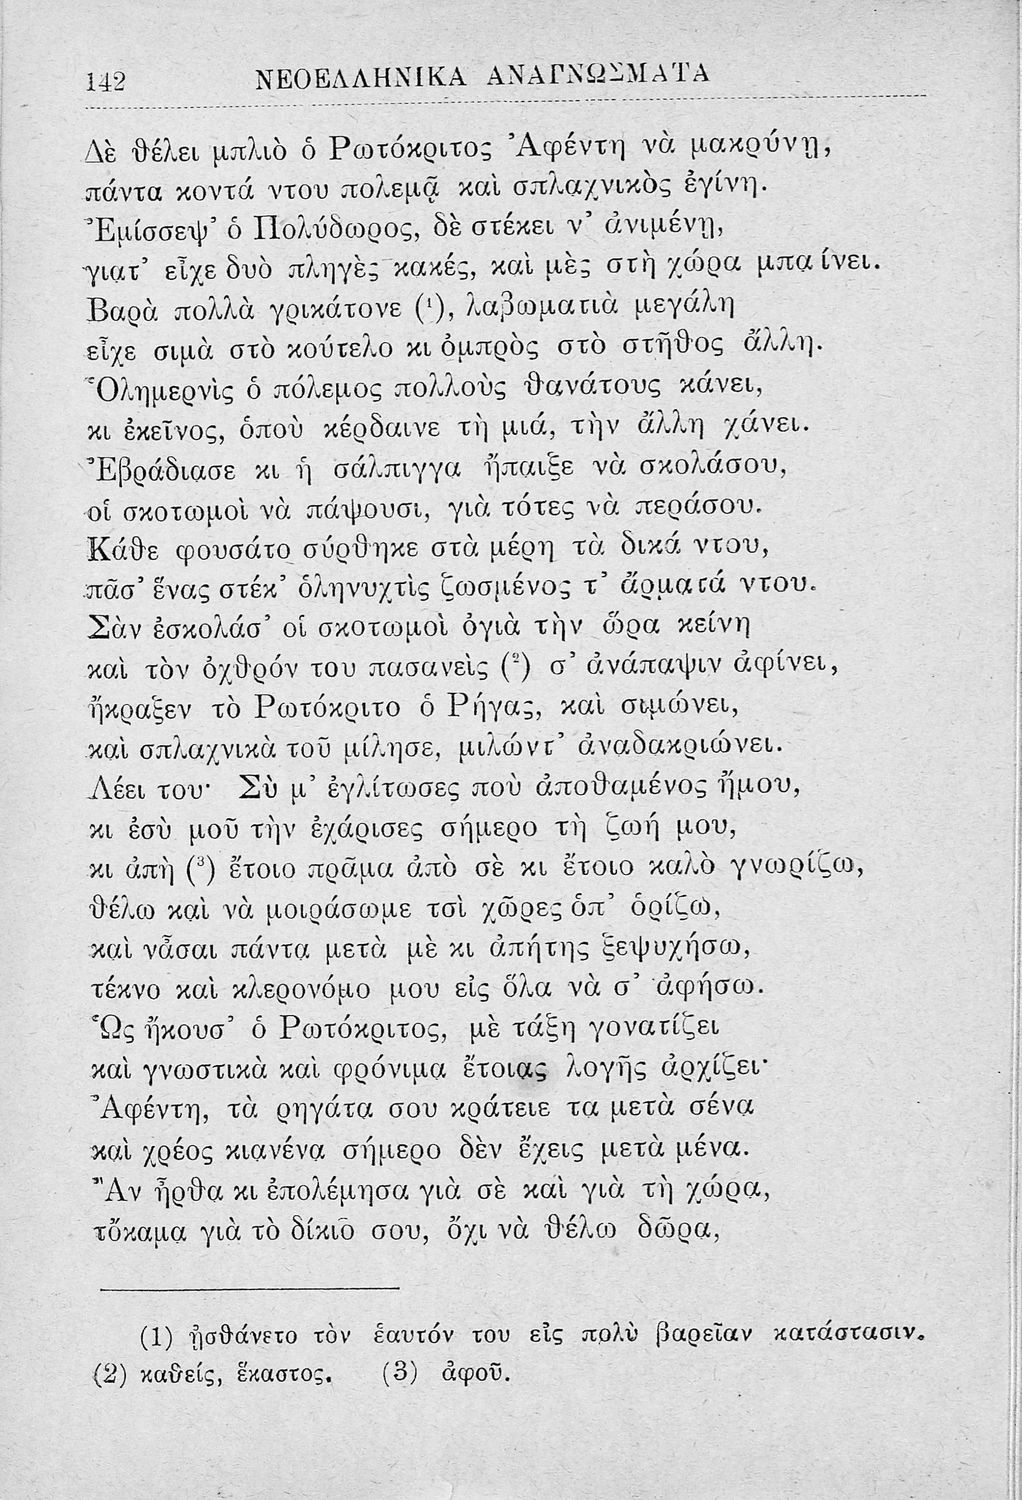 142 ΝΕΟΕΛΛΗΝΙΚΑ ΑΝΑΓΝΩΣΜΑΤΑ
Δὲ θέλει μπλιὸ ὁ Ρωτόκριτος Ἀφέντη νὰ μακρύνῃ,
πάντα κοντά ντου πολεμᾷ καὶ σπλαχνικὸς ἐγίνη.
Ἐμίσσεψ’ ὁ Πολύδωρος, δὲ στέκει ν’ ἀνιμένῃ,
γιατ’ εἶχε δυὸ πληγὲς κακές, καὶ μὲς στὴ χώρα μπαίνει.
Βαρὰ πολλὰ γρικάτονε (¹), λαβωματιὰ μεγάλη
εἶχε σιμὰ στὸ κούτελο κι ὀμπρὸς στὸ στῆθος ἄλλη.
Ὁλημερνὶς ὁ πόλεμος πολλοὺς θανάτους κάνει,
κι ἐκεῖνος, ὁποὺ κέρδαινε τὴ μιά, τὴν ἄλλη χάνει.
Ἐβράδιασε κι ἡ σάλπιγγα ἤπαιξε νὰ σκολάσου,
οἱ σκοτωμοὶ νὰ πάψουσι, γιὰ τότες νὰ περάσου.
Κάθε φουσάτο σύρθηκε στὰ μέρη τὰ δικά ντου,
πᾶσ’ ἕνας στέκ’ ὁληνυχτὶς ζωσμένος τ’ ἄρματά ντου.
Σὰν ἐσκολάσ’ οἱ σκοτωμοὶ ὀγιὰ τὴν ὥρα κείνη
καὶ τὸν ὀχθρόν του πασανεὶς (²) σ’ ἀνάπαψιν ἀφίνει,
ἤκραξεν τὸ Ρωτόκριτο ὁ Ρήγας, καὶ σιμώνει,
καὶ σπλαχνικὰ τοῦ μίλησε, μιλώντ’ ἀναδακριώνει.
Λέει του· Σὺ μ’ ἐγλίτωσες ποὺ ἀποθαμένος ἤμου,
κι ἐσὺ μοῦ τὴν ἐχάρισες σήμερο τὴ ζωή μου,
κι ἀπὴ (³) ἔτοιο πρᾶμα ἀπὸ σὲ κι ἔτοιο καλὸ γνωρίζω,
θέλω καὶ νὰ μοιράσωμε τσὶ χῶρες ὁπ’ ὁρίζω,
καὶ νᾶσαι πάντα μετὰ μὲ κι ἀπήτης ξεψυχήσω,
τέκνο καὶ κλερονόμο μου εἰς ὅλα νὰ σ’ ἀφήσω.
Ὡς ἤκουσ’ ὁ Ρωτόκριτος, μὲ τάξη γονατίζει
καὶ γνωστικὰ καὶ φρόνιμα ἔτοιας λογῆς ἀρχίζει·
Ἀφέντη, τὰ ρηγάτα σου κράτειε τα μετὰ σένα
καὶ χρέος κιανένα σήμερο δὲν ἔχεις μετὰ μένα.
Ἂν ἦρθα κι ἐπολέμησα γιὰ σὲ καὶ γιὰ τὴ χώρα,
τὄκαμα γιὰ τὸ δίκιο σου, ὄχι νὰ θέλω δῶρα,
(1) ᾐσθάνετο τὸν ἑαυτόν του εἰς πολὺ βαρεῖαν κατάστασιν.
(2) καθείς, ἕκαστος. (3) ἀφοῦ.